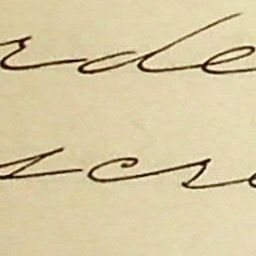 rde
scre